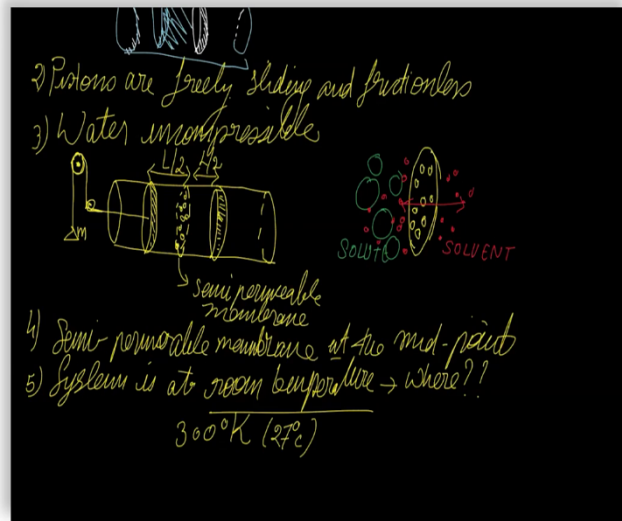 2) Pistons are freely sliding and frictionless
3) Water incompressible
L/2 L/2
m
semi permeable
membrane
SOLUTE SOLVENT
4) Semi-permeable membrane at the mid-point
5) System is at room temperature → where??
300°K (27°C)